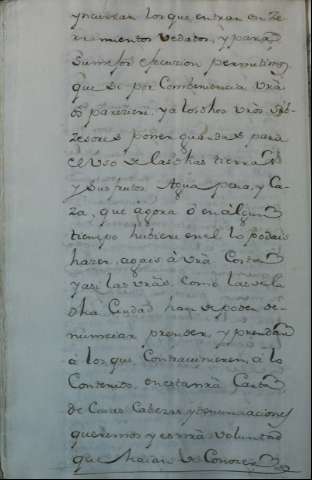 yncurran los que entran en ze
rramientos vedados, y para
su mejor execucion permitimos
que si por Combeniencia vrâ
os pareziere, ya los dhos vros sub-
zesores poner guardas para
el Uso de las dhas tierras
y sus frutos Agua, pasa, y Ca-
za, que agora ô en algun
tiempo hubiere en el lo podais
hazer, agais â vrâ Costa
y asi las vrâs, Como las de la
dhâ Ciudad han de poder de-
nunciar prender, y prendan
â los que Contravinieren, â lo
Contenido, en esta nrâ Carta
de Cuias Cabezas, y denunciaciones
queremos y es nrâ voluntad
que haian de Conozer